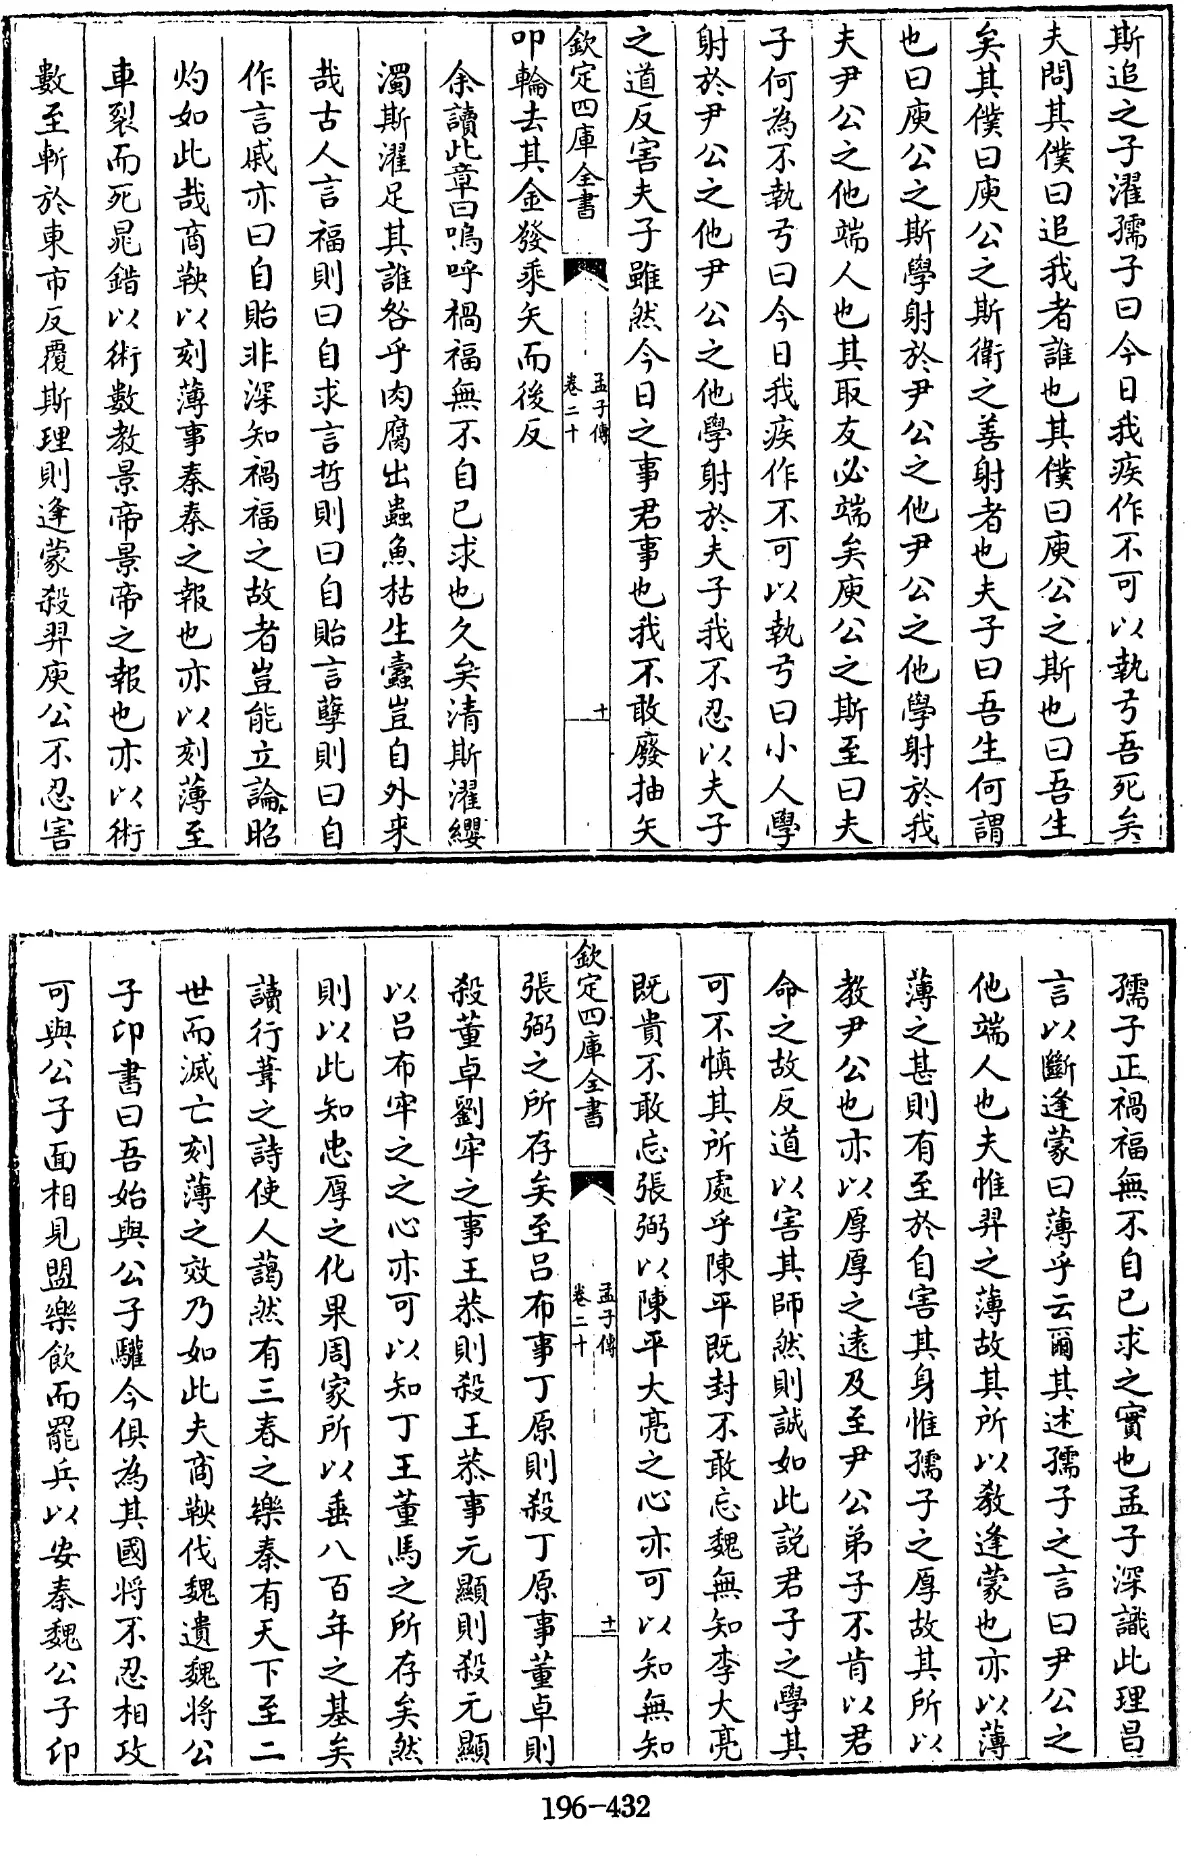 斯追之子濯孺子曰今日我疾作不可以執弓吾死矣
夫問其僕曰追我者誰也其僕曰庾公之斯也曰吾生
矣其僕曰庾公之斯衛之善射者也夫子曰吾生何謂
也曰庾公之斯學射於尹公之他尹公之他學射於我
夫尹公之他端人也其取友必端矣庾公之斯至曰夫
子何為不執弓曰今日我疾作不可以執弓曰小人學
射於尹公之他尹公之他學射於夫子我不忍以夫子
之道反害夫子雖然今日之事君事也我不敢廢抽矢
欽定四庫全書
孟子傳
卷二十
十
叩輪去其金發乘矢而後反
余讀此章曰嗚呼禍福無不自己求也久矣清斯濯纓
濁斯濯足其誰咎乎肉腐出蟲魚枯生蠹豈自外來
哉古人言福則曰自求言哲則曰自貽言孽則曰自
作言戚亦曰自貽非深知禍福之故者豈能立論昭
灼如此哉商鞅以刻薄事秦秦之報也亦以刻薄至
車裂而死晁錯以術數教景帝景帝之報也亦以術
數至斬於東市反覆斯理則逄蒙殺羿庾公不忍害
孺子正禍福無不自己求之實也孟子深識此理昌
言以斷逄蒙曰薄乎云爾其述孺子之言曰尹公之
他端人也夫惟羿之薄故其所以教逄蒙也亦以薄
薄之甚則有至於自害其身惟孺子之厚故其所以
教尹公也亦以厚厚之遠及至尹公弟子不肯以君
命之故反道以害其師然則誠如此說君子之學其
可不慎其所處乎陳平既封不敢忘魏無知李大亮
既貴不敢忘張弼以陳平大亮之心亦可以知無知
欽定四庫全書
孟子傳
卷二十
十一
張弼之所存矣至呂布事丁原則殺丁原事董卓則
殺董卓劉牢之事王恭則殺王恭事元顯則殺元顯
以呂布牢之之心亦可以知丁王董馬之所存矣然
則以此知忠厚之化果周家所以垂八百年之基矣
讀行葦之詩使人藹然有三春之樂秦有天下至二
世而滅亡刻薄之效乃如此夫商鞅伐魏遺魏將公
子卬書曰吾始與公子驩今俱為其國將不忍相攻
可與公子面相見盟樂飲而罷兵以安秦魏公子卬
196-432